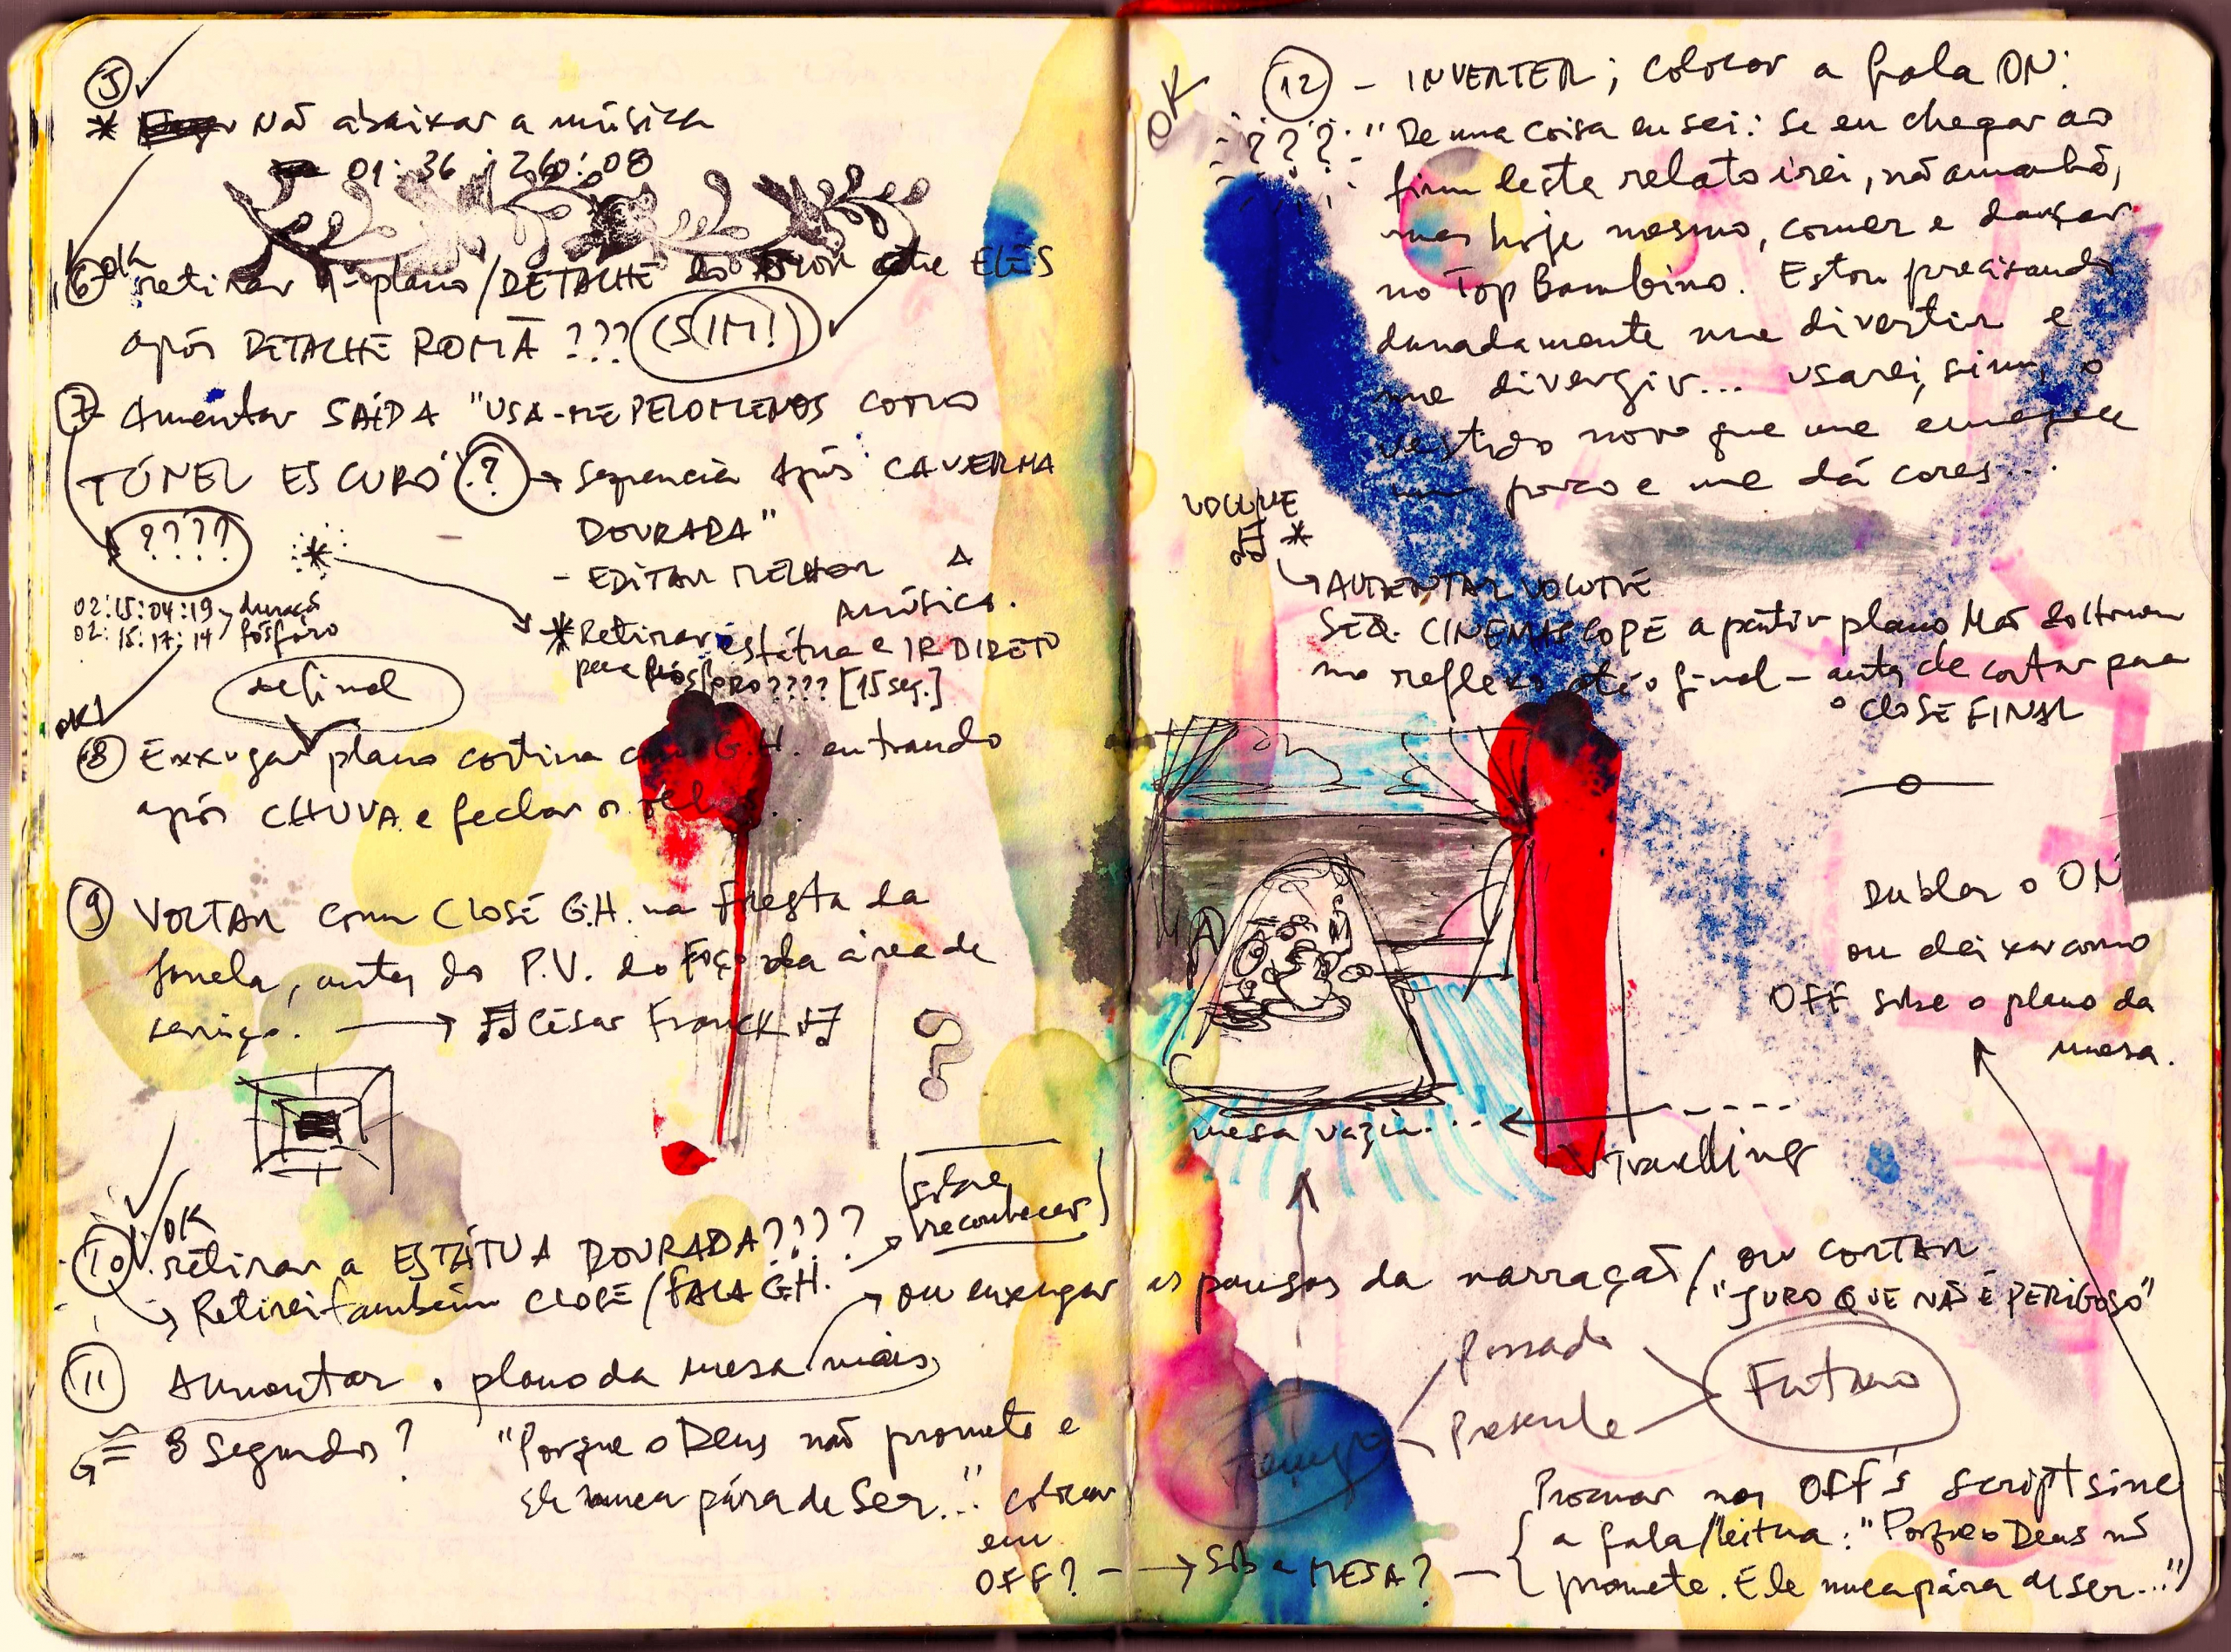 5
* Não abaixar a música
01:36:26:08
OK
6 retirar 1º plano/DETALHE do entre ELES
após DETALHE ROMÃ ??? (SIM!)
7 Aumentar SAÍDA "USA-ME PELO MENOS como
TÚNEL ESCURO" (?) → Sequencia Após CAVERNA
DOURADA"
????
*
- EDITAR MELHOR A
música.
02:15:04:19
02:15:17:14
duração
fósforo
* Retirar estátua e IR DIRETO
para fósforo???? [15 seg.]
definal
OK!
8 Enxugar plano cortina com G.H. entrando
após CHUVA e fechar o
9 VOLTAR com CLOSE G.H. na Fresta da
Janela, antes do P.V. do Foço da área de
serviço. → César Franck
?
OK
10 retirar a ESTÁTUA DOURADA????
→ Retirei também CLOSE/FALA G.H. →
[sobre
reconhecer]
11 Aumentar o plano da mesa mais
8 Segundos?
→ ou enxugar as pausas da narração/ ou CORTAR
"JURO QUE NÃO É PERIGOSO"
"Porque o Deus não promete e
Ele nunca pára de Ser..." colocar
em
OFF? → Sob a MESA?
OK
12 - INVERTER; colocar a fala ON:
???
"De uma coisa eu sei: se eu chegar ao
fim deste relato irei, não amanhã,
mas hoje mesmo, comer e dançar
no Top Bambino. Estou precisando
danadamente me divertir e
me divergir... usarei, sim, o
vestido novo que me emagrece
um pouco e me dá cores...
VOLUME
*
→ AUMENTAR VOLUME
SEQ. CINEMASCOPE a partir plano Mão do Homem
no reflexo até o final – antes de cortar para
o CLOSE FINAL
Dublar o ON
ou deixar como
OFF sobre o plano da
mesa.
mesa vazia...
Travelling
Passado
Presente
Futuro
Tempo
Procurar nos OFF's script sine
a fala/leitura: "Porque o Deus não
promete. Ele nunca pára de ser..."